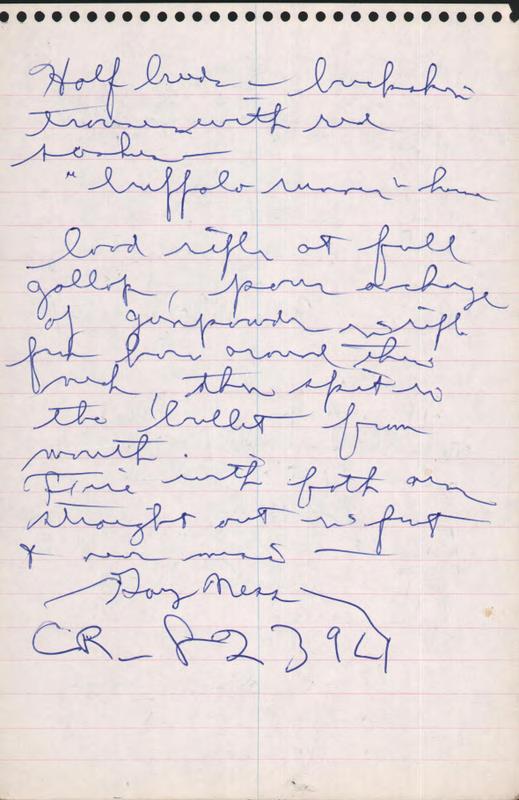 Half breeds - buckskin
trousers with red
sashes -
"buffalo runner" horse
load rifle at full
gallop, pour a charge
of gunpowder in rifle
from horn around their
neck, then spit in
the bullet from
mouth.
Fire with both arms
straight out in front
+ never miss -
Ness
CR-82394